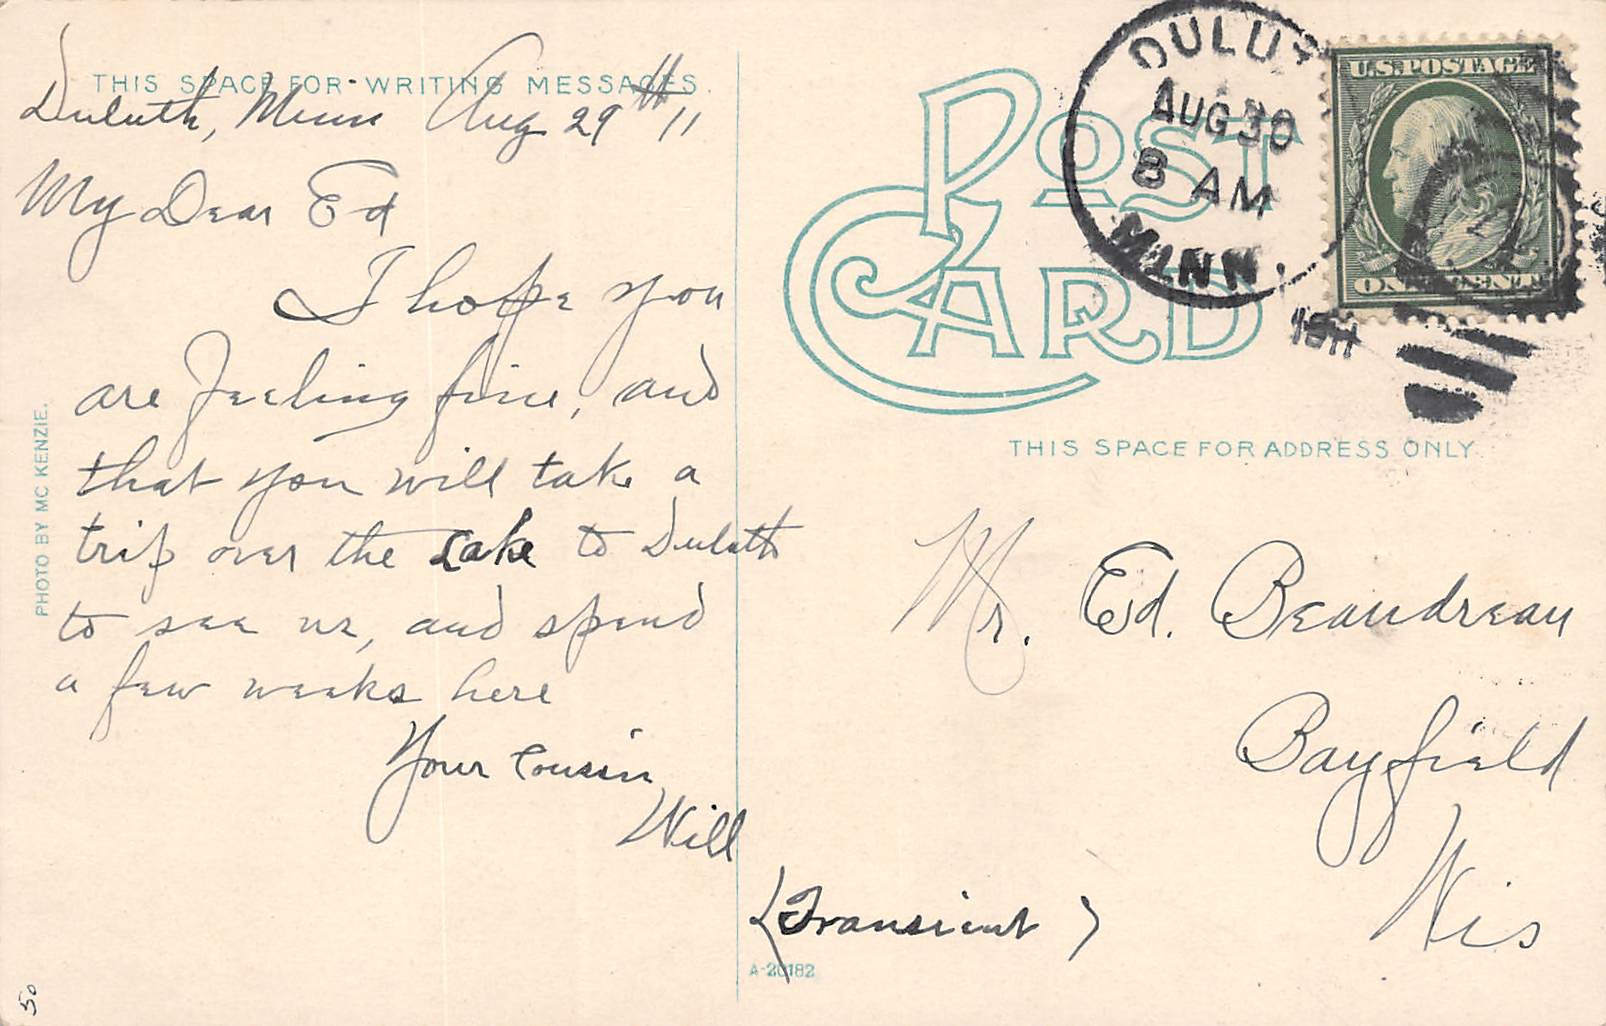 THIS SPACE FOR WRITING MESSAGES.
Duluth, Minn Aug 29th 11
My Dear Ed
I hope you
are feeling fine, and
that you will take a
trip over the Lake to Duluth
to see us, and spend
a few weeks here
Your Cousin
Will
PHOTO BY MC KENZIE.
50
POST CARD
DULUT
AUG 30
8 AM
MINN.
1911
U.S. POSTAGE
ONE CENT
THIS SPACE FOR ADDRESS ONLY.
Mr. Ed. Beaudreau
Bayfield
Wis
(Transient)
A-20182